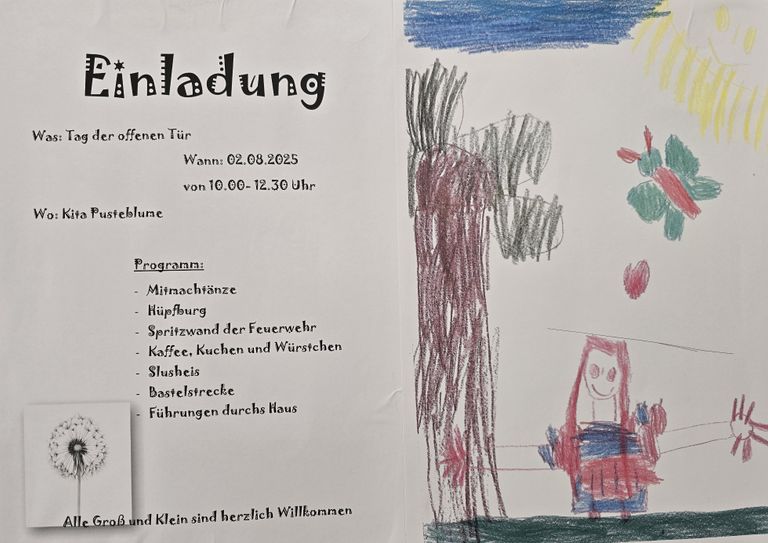 Einladung
Was: Tag der offenen Tür
Wann: 02.08.2025
von 10.00- 12.30 Uhr
Wo: Kita Pusteblume
Programm:
- Mitmachtänze
- Hüpfburg
- Spritzwand der Feuerwehr
- Kaffee, Kuchen und Würstchen
- Slusheis
- Bastelstrecke
- Führungen durchs Haus
Alle Groß und Klein sind herzlich Willkommen